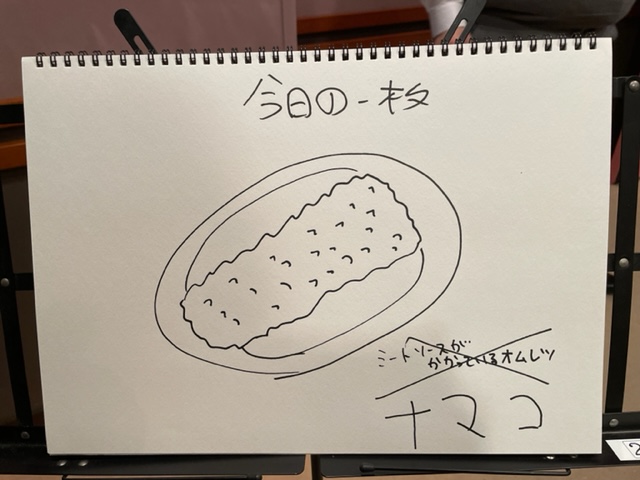 今日の一枚
ミートソースが
かかっているオムレツ
ナマコ
2